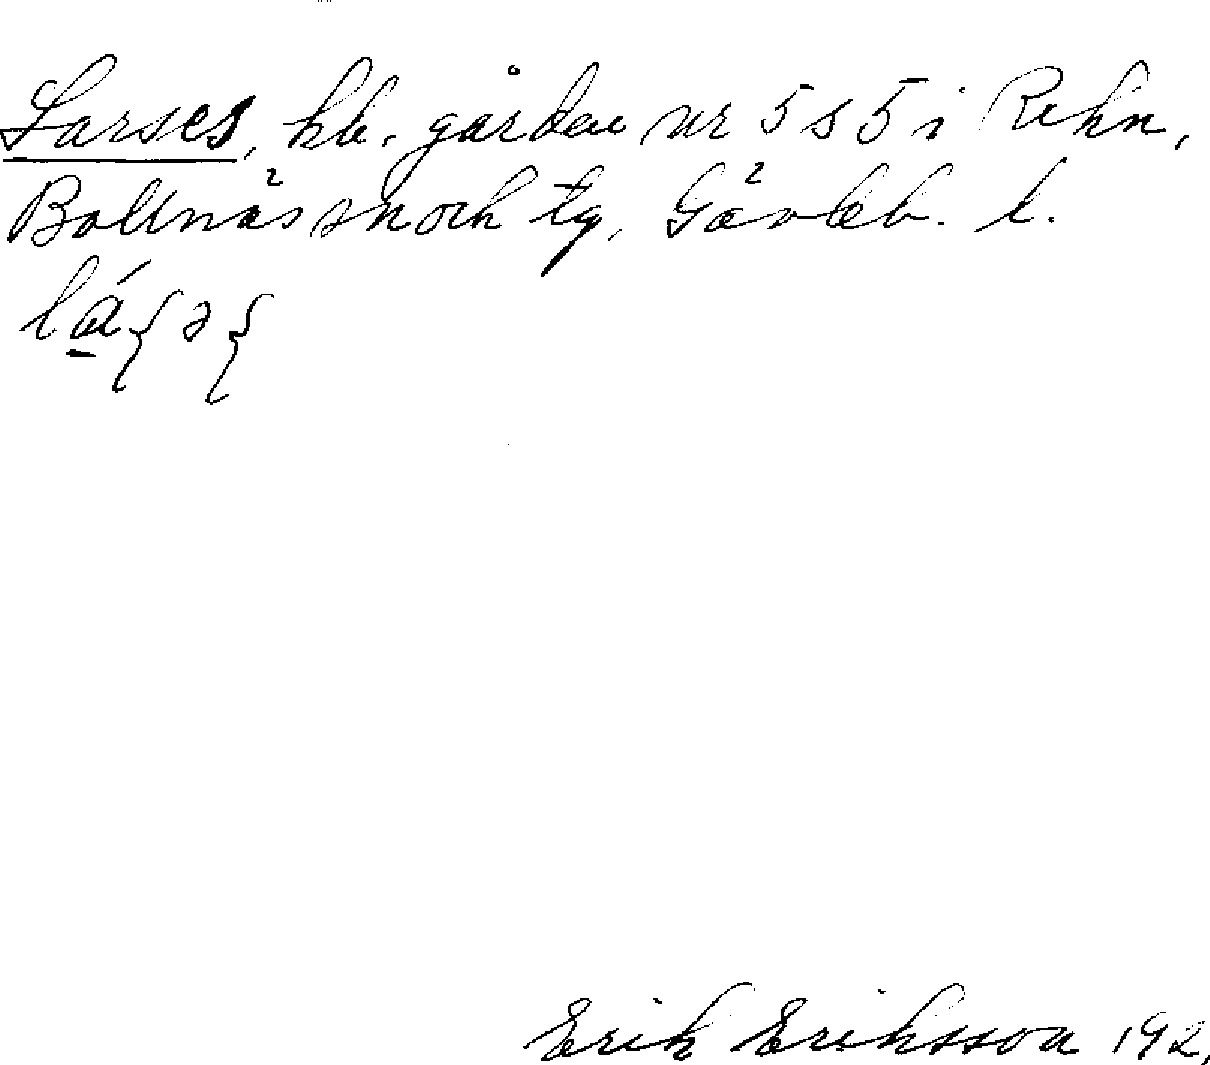 Larses, hb. gården nr 5 s 5 i Rehn,
Bollnäs sn och tg, Gävleb. l.
Erik Eriksson 192